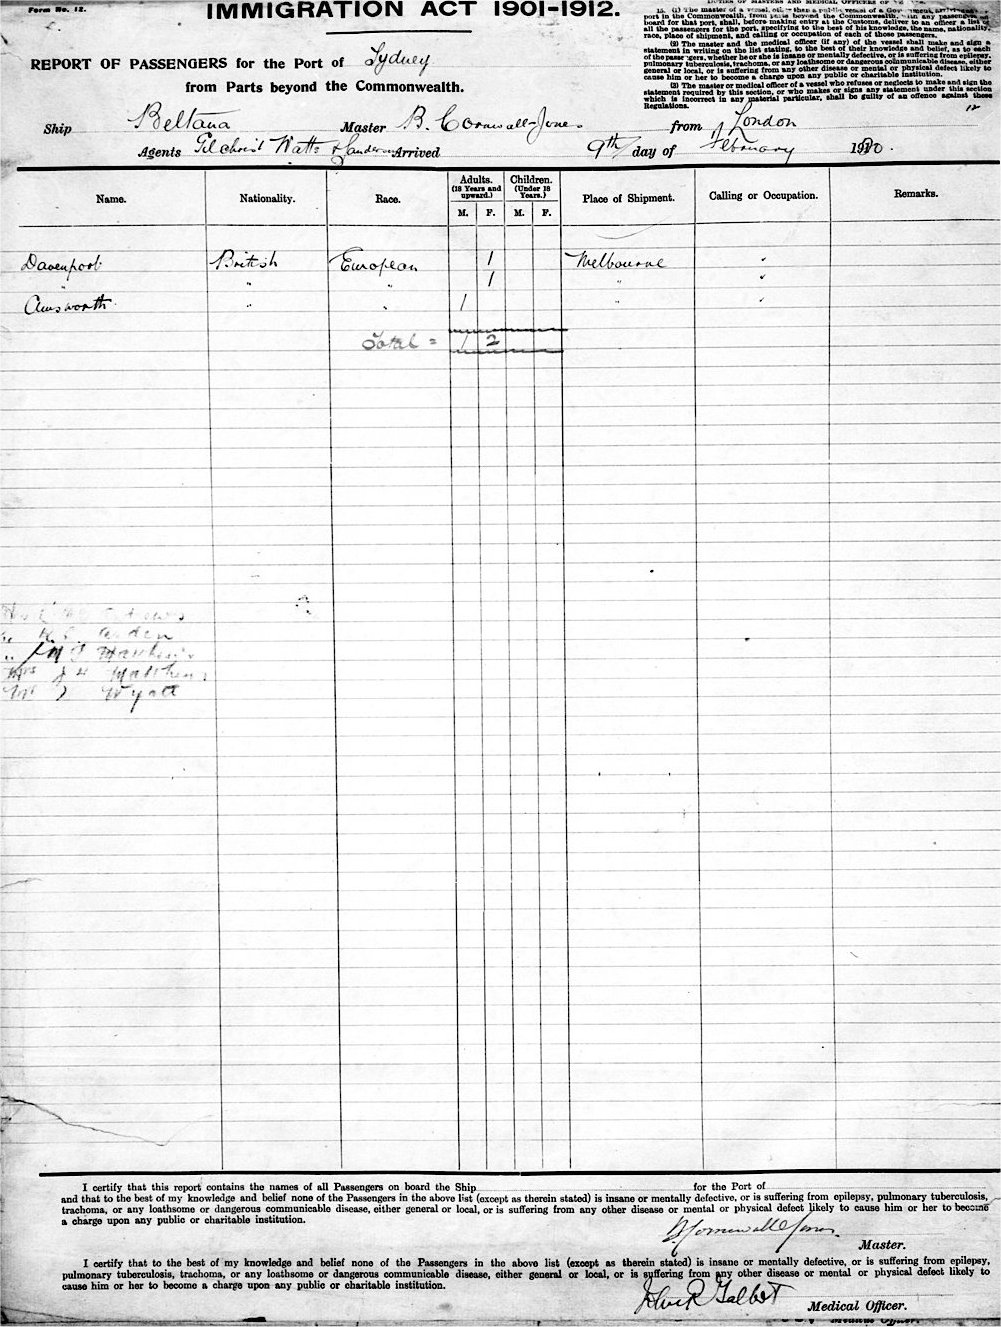 Form No. 12.
IMMIGRATION ACT 1901-1912.
REPORT OF PASSENGERS for the Port of Sydney
from Parts beyond the Commonwealth.
15. (1) The master of a vessel, other than a public vessel of a Government, arriving
port in the Commonwealth, from parts beyond the Commonwealth, with any passengers
board for that port, shall, before making entry at the Customs, deliver to an officer a list of
all the passengers for the port, specifying to the best of his knowledge, the name, nationality,
race, place of shipment, and calling or occupation of each of those passengers.
(2) The master and the medical officer (if any) of the vessel shall make and sign a
statement in writing on the list stating, to the best of their knowledge and belief, as to each
of the passengers, whether he or she is insane or mentally defective, or is suffering from epilepsy
pulmonary tuberculosis, trachoma, or any loathsome or dangerous communicable disease, either
general or local, or is suffering from any other disease or mental or physical defect likely to
cause him or her to become a charge upon any public or charitable institution.
(3) The master or medical officer of a vessel who refuses or neglects to make and sign the
statement required by this section, or who makes or signs any statement under this section
which is incorrect in any material particular, shall be guilty of an offence against these
Regulations.
12
Ship Beltana Master B. Cornwall-Jones from London
Agents Gilchrist Watts & Sanderson Arrived 9th day of February 19
Name. Nationality. Race. Adults. (18 Years and upward.) Children. (Under 18 Years.) Place of Shipment. Calling or Occupation. Remarks.
M. F. M. F.
Davenport British European 1 Melbourne "
" " " 1 " "
Ainsworth " " 1 " "
Total = 1 2
K. S. Arden
Mrs J H Matthews
Wyatt
I certify that this report contains the names of all Passengers on board the Ship for the Port of
and that to the best of my knowledge and belief none of the Passengers in the above list (except as therein stated) is insane or mentally defective, or is suffering from epilepsy, pulmonary tuberculosis,
trachoma, or any loathsome or dangerous communicable disease, either general or local, or is suffering from any other disease or mental or physical defect likely to cause him or her to become
a charge upon any public or charitable institution.
B Cornwall Jones
Master.
I certify that to the best of my knowledge and belief none of the Passengers in the above list (except as therein stated) is insane or mentally defective, or is suffering from epilepsy,
pulmonary tuberculosis, trachoma, or any loathsome or dangerous communicable disease, either general or local, or is suffering from any other disease or mental or physical defect likely to
cause him or her to become a charge upon any public or charitable institution.
John R Talbot
Medical Officer.